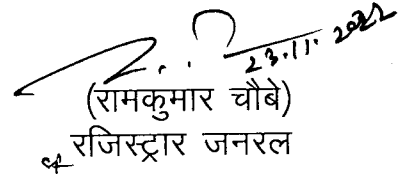 23.11.2022
(रामकुमार चौबे)
रजिस्ट्रार जनरल